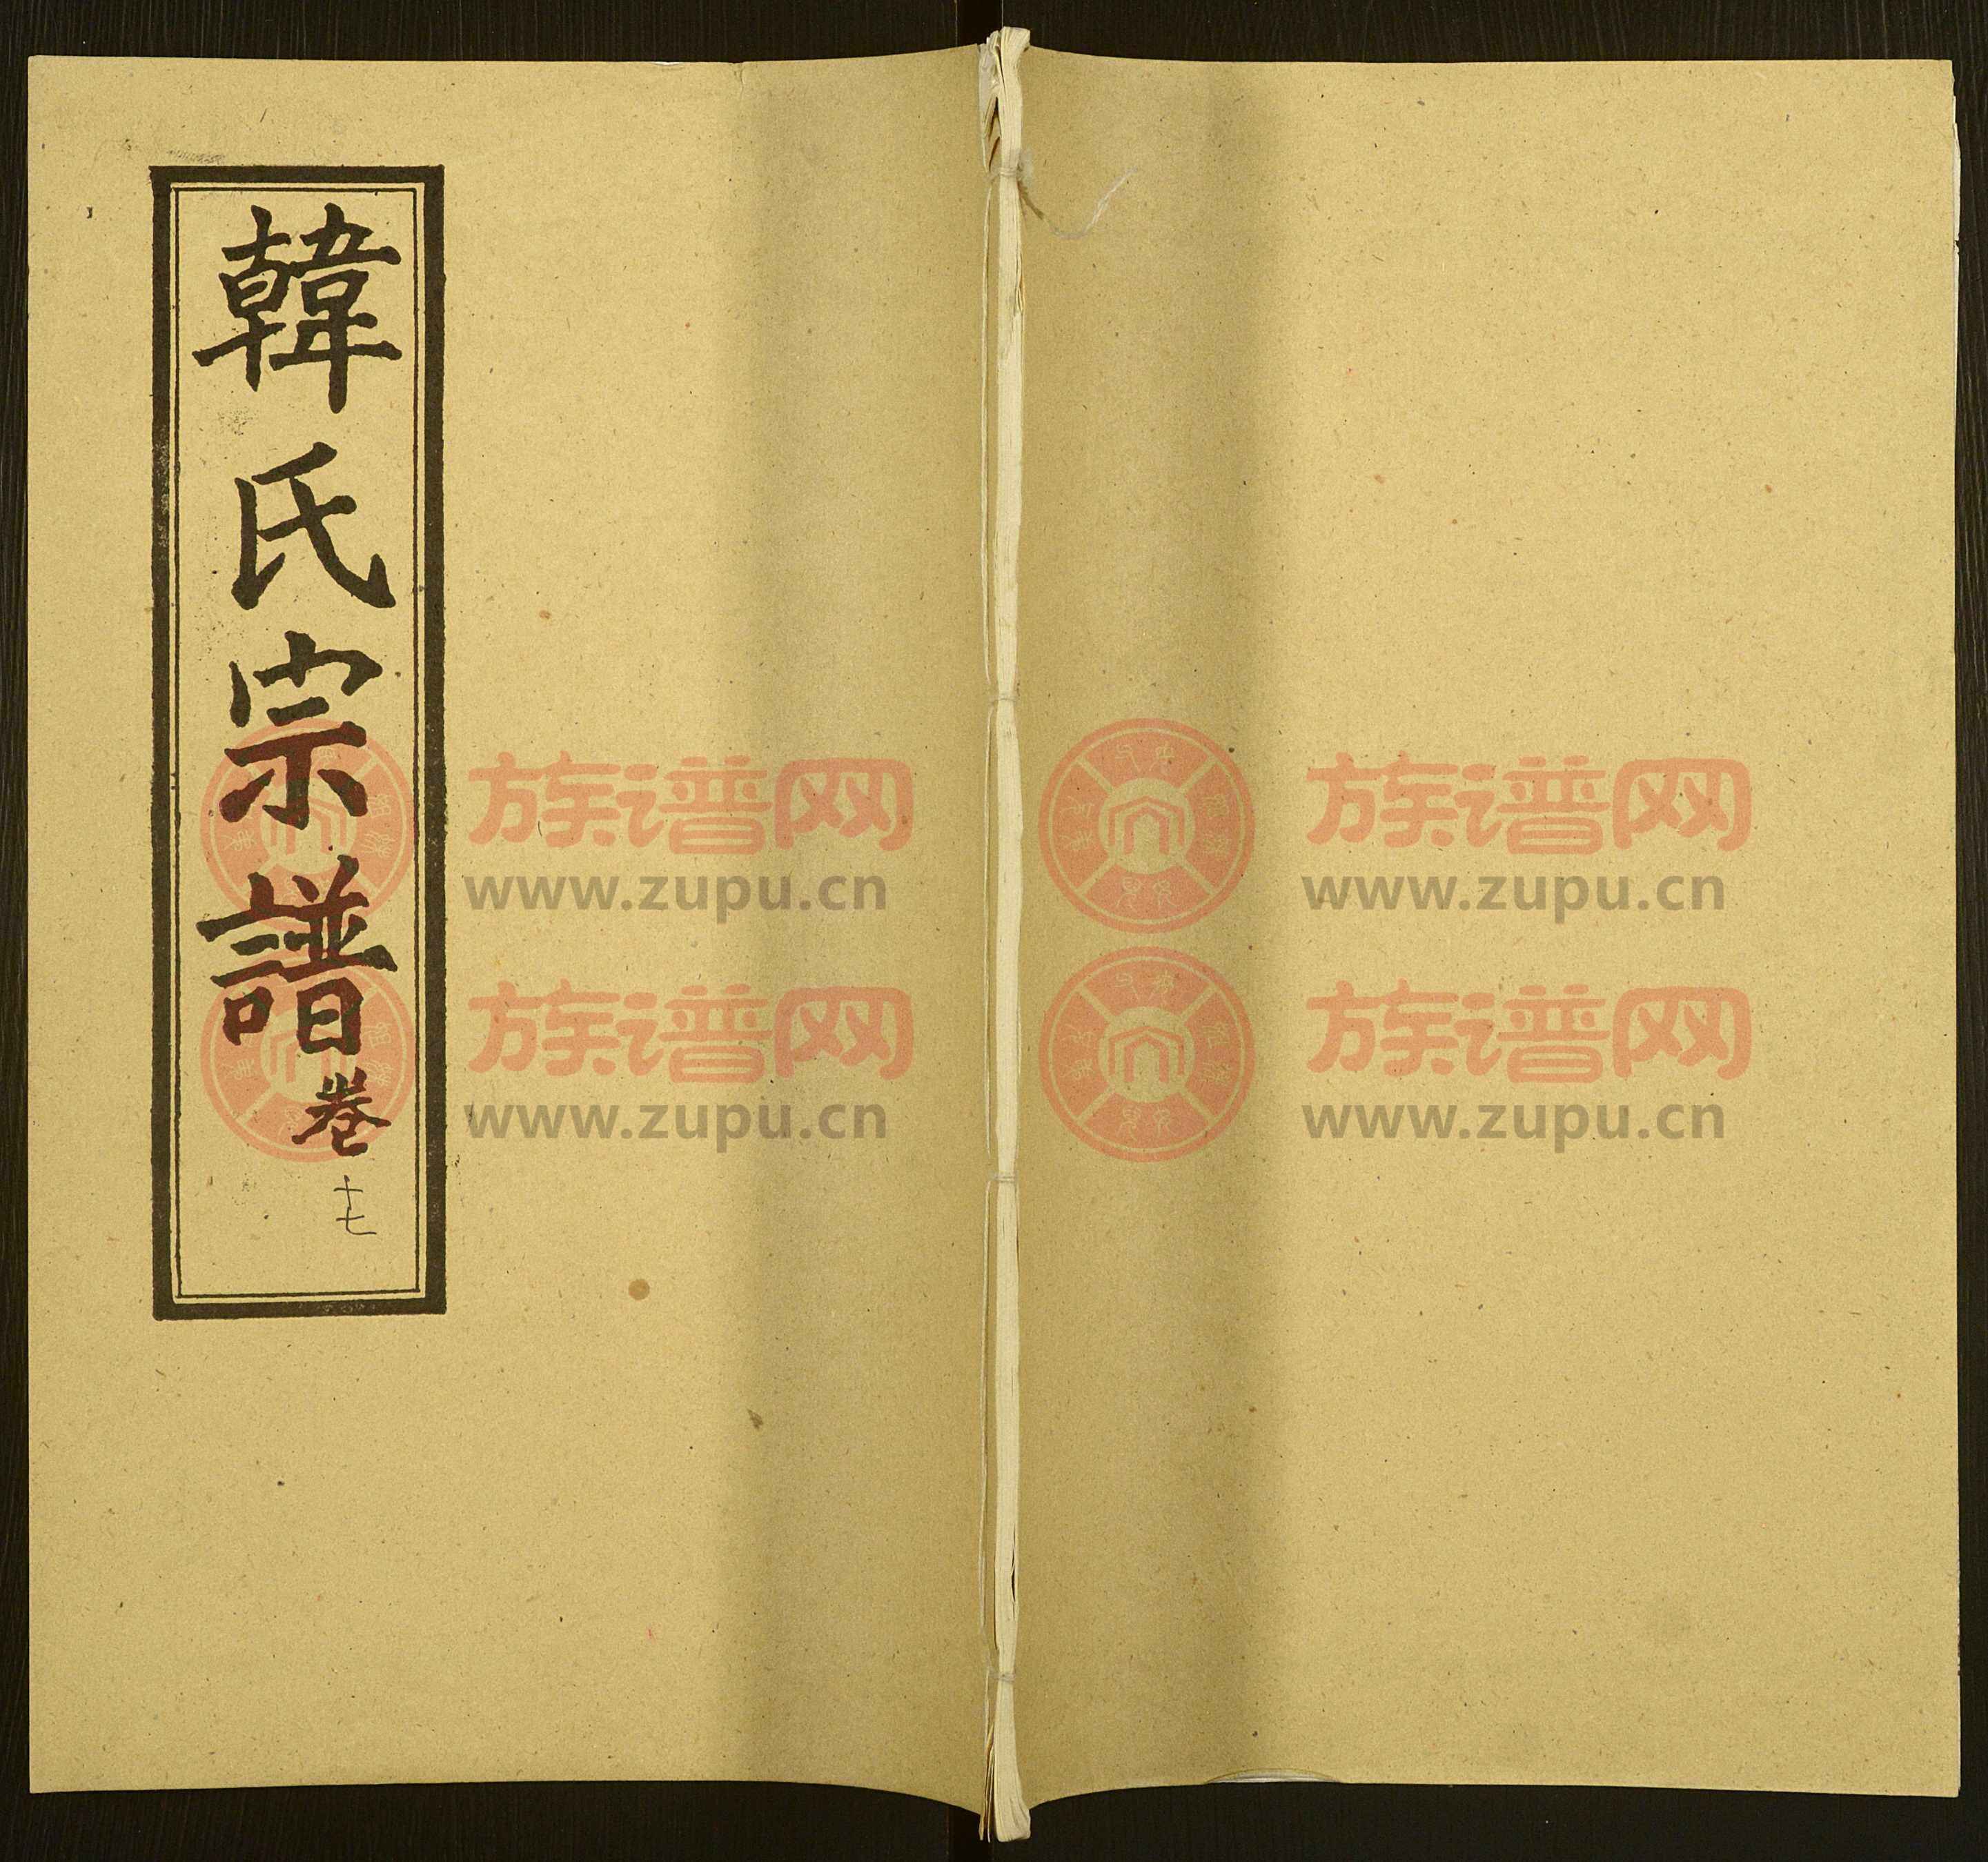 韓氏宗譜 卷十七
族谱网
www.zupu.cn
族谱网
www.zupu.cn
族谱网
www.zupu.cn
族谱网
www.zupu.cn